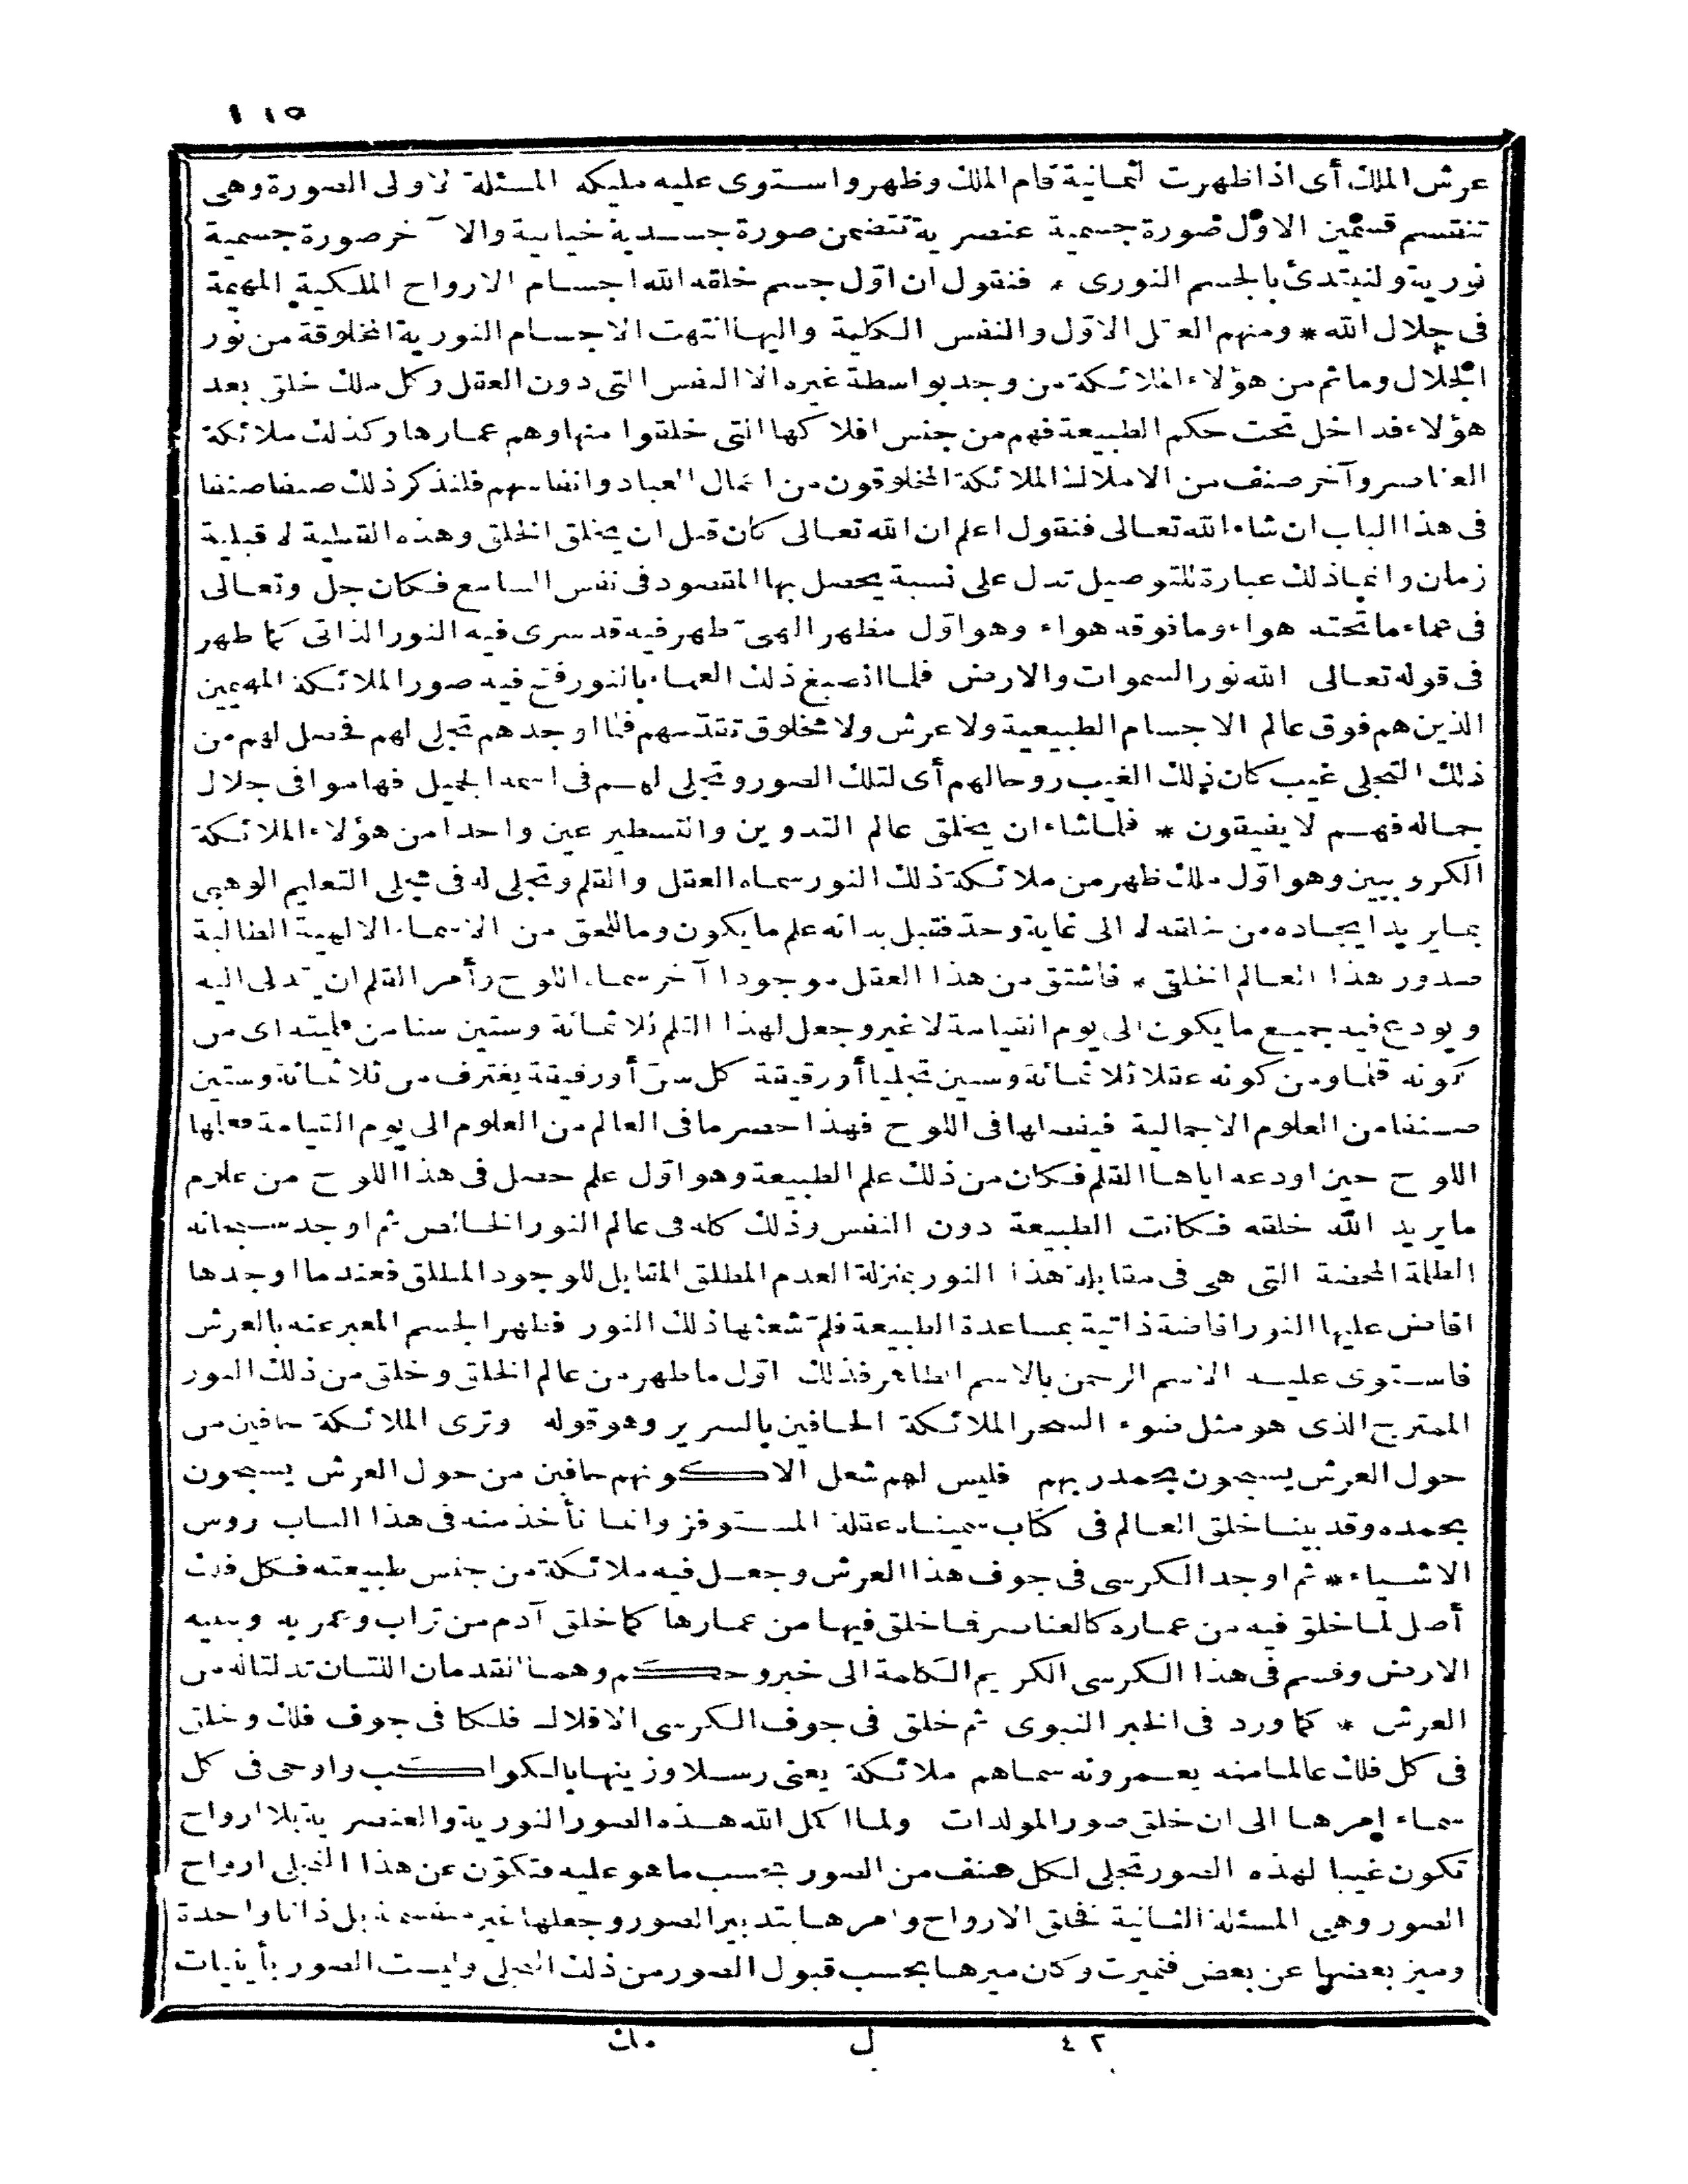 ١١٥
عرش الملك أى اذا ظهرت الثمانية قام الملك وظهر واستوى عليه مليكه المسئلة الاولى الصورة وهى
تنقسم قسمين الاوّل صورة جسمية عنصرية تتضمن صورة جسدية خيالية والآخر صورة جسمية
نورية ولنبتدئ بالجسم النورى * فنقول ان اوّل جسم خلقه الله اجسام الارواح الملكية المهيمة
فى جلال الله * ومنهم العقل الاوّل والنفس الكلية واليها انتهت الاجسام النورية المخلوقة من نور
الجلال وما ثم من هؤلاء الملائكة من وجد بواسطة غيره الا النفس التى دون العقل وكل ملك خلق بعد
هؤلاء فداخل تحت حكم الطبيعة فهم من جنس افلاكها التى خلقوا منها وهم عمارها وكذلك ملائكة
العناصر وآخر صنف من الاملاك الملائكة المخلوقون من اعمال العباد وانفاسهم فلنذكر ذلك صنفا صنفا
فى هذا الباب ان شاء الله تعالى فنقول اعلم ان الله تعالى كان قبل ان يخلق الخلق وهذه القبلية لا قبلية
زمان وانما ذلك عبارة للتوصيل تدل على نسبة يحصل بها المقصود فى نفس السامع فكان جل وتعالى
فى عماء ما تحته هواء وما فوقه هواء وهو اوّل مظهر الهىّ ظهر فيه قد سرى فيه النور الذاتى كما ظهر
فى قوله تعالى الله نور السموات والارض فلما انصبغ ذلك العماء بالنور فتح فيه صور الملائكة المهيمين
الذين هم فوق عالم الاجسام الطبيعية ولا عرش ولا مخلوق تقدّمهم فلما اوجدهم تجلى لهم فحصل لهم من
ذلك التجلى غيب كان ذلك الغيب روحا لهم أى لتلك الصور وتجلى لهم فى اسمه الجميل فهاموا فى جلال
جماله فهم لا يفيقون * فلما شاء ان يخلق عالم التدوين والتسطير عين واحدا من هؤلاء الملائكة
الكروبيين وهو اوّل ملك ظهر من ملائكة ذلك النور سماه العقل والقلم وتجلى له فى مجلى التعليم الوهبى
بما يريد ايجاده من خلقه لا الى غاية وحدّ فقبل بذاته علم ما يكون وما للحق من الاسماء الالهية الطالبة
صدور هذا العالم الخلقى * فاشتق من هذا العقل موجودا آخر سماه اللوح وأمر القلم ان يتدلى اليه
ويودع فيه جميع ما يكون الى يوم القيامة لا غير وجعل لهذا القلم ثلاثمائة وستين سنا من قلميته اى من
كونه قلما ومن كونه عقلا ثلاثمائة وستين تجليا أو رقيقة كل سنّ أو رقيقة يغترف من ثلاثمائة وستين
صنفا من العلوم الاجمالية فيفصلها فى اللوح فهذا حصر ما فى العالم من العلوم الى يوم القيامة فعلمها
اللوح حين اودعه اياها القلم فكان من ذلك علم الطبيعة وهو اوّل علم حصل فى هذا اللوح من علوم
ما يريد الله خلقه فكانت الطبيعة دون النفس وذلك كله فى عالم النور الخالص ثم اوجد سبحانه
الظلمة المحضة التى هى فى مقابلة هذا النور بمنزلة العدم المطلق المقابل للوجود المطلق فعندما اوجدها
افاض عليها النور افاضة ذاتية بمساعدة الطبيعة فلمّ شعثها ذلك النور فظهر الجسم المعبر عنه بالعرش
فاستوى عليه الاسم الرحمن بالاسم الظاهر فذلك اوّل ما ظهر من عالم الخلق وخلق من ذلك النور
الممتزج الذى هو مثل ضوء السحر الملائكة الحافين بالسرير وهو قوله وترى الملائكة حافين من
حول العرش يسبحون بحمد ربهم فليس لهم شغل الا كونهم حافين من حول العرش يسبحون
بحمده وقد بينا خلق العالم فى كتاب سميناه عقلة المستوفز وانما نأخذ منه فى هذا الباب روس
الاشياء * ثم اوجد الكرسى فى جوف هذا العرش وجعل فيه ملائكة من جنس طبيعته فكل فلك
أصل لما خلق فيه من عماره كالعناصر فيما خلق فيها من عمارها كما خلق آدم من تراب وعمر به وببنيه
الارض وقسم فى هذا الكرسى الكريم الكلمة الى خبر وحكم وهما القدمان اللتان تدلتا له من
العرش * كما ورد فى الخبر النبوى ثم خلق فى جوف الكرسى الافلاك فلكا فى جوف فلك وخلق
فى كل فلك عالما منه يعمرونه سماهم ملائكة يعنى رسلا وزينها بالكواكب واوحى فى كل
سماء امرها الى ان خلق صور المولدات ولما اكمل الله هذه الصور النورية والعنصرية بلا ارواح
تكون غيبا لهذه الصور تجلى لكل صنف من الصور بحسب ما هو عليه فتكوّن عن هذا التجلى ارواح
الصور وهى المسئلة الثانية فخلق الارواح وامرها بتدبير الصور وجعلها غير منقسمة بل ذاتا واحدة
وميز بعضها عن بعض فتميزت وكان ميزها بحسب قبول الصور من ذلك التجلى وليست الصور بأينيات
٤٢ ل مك